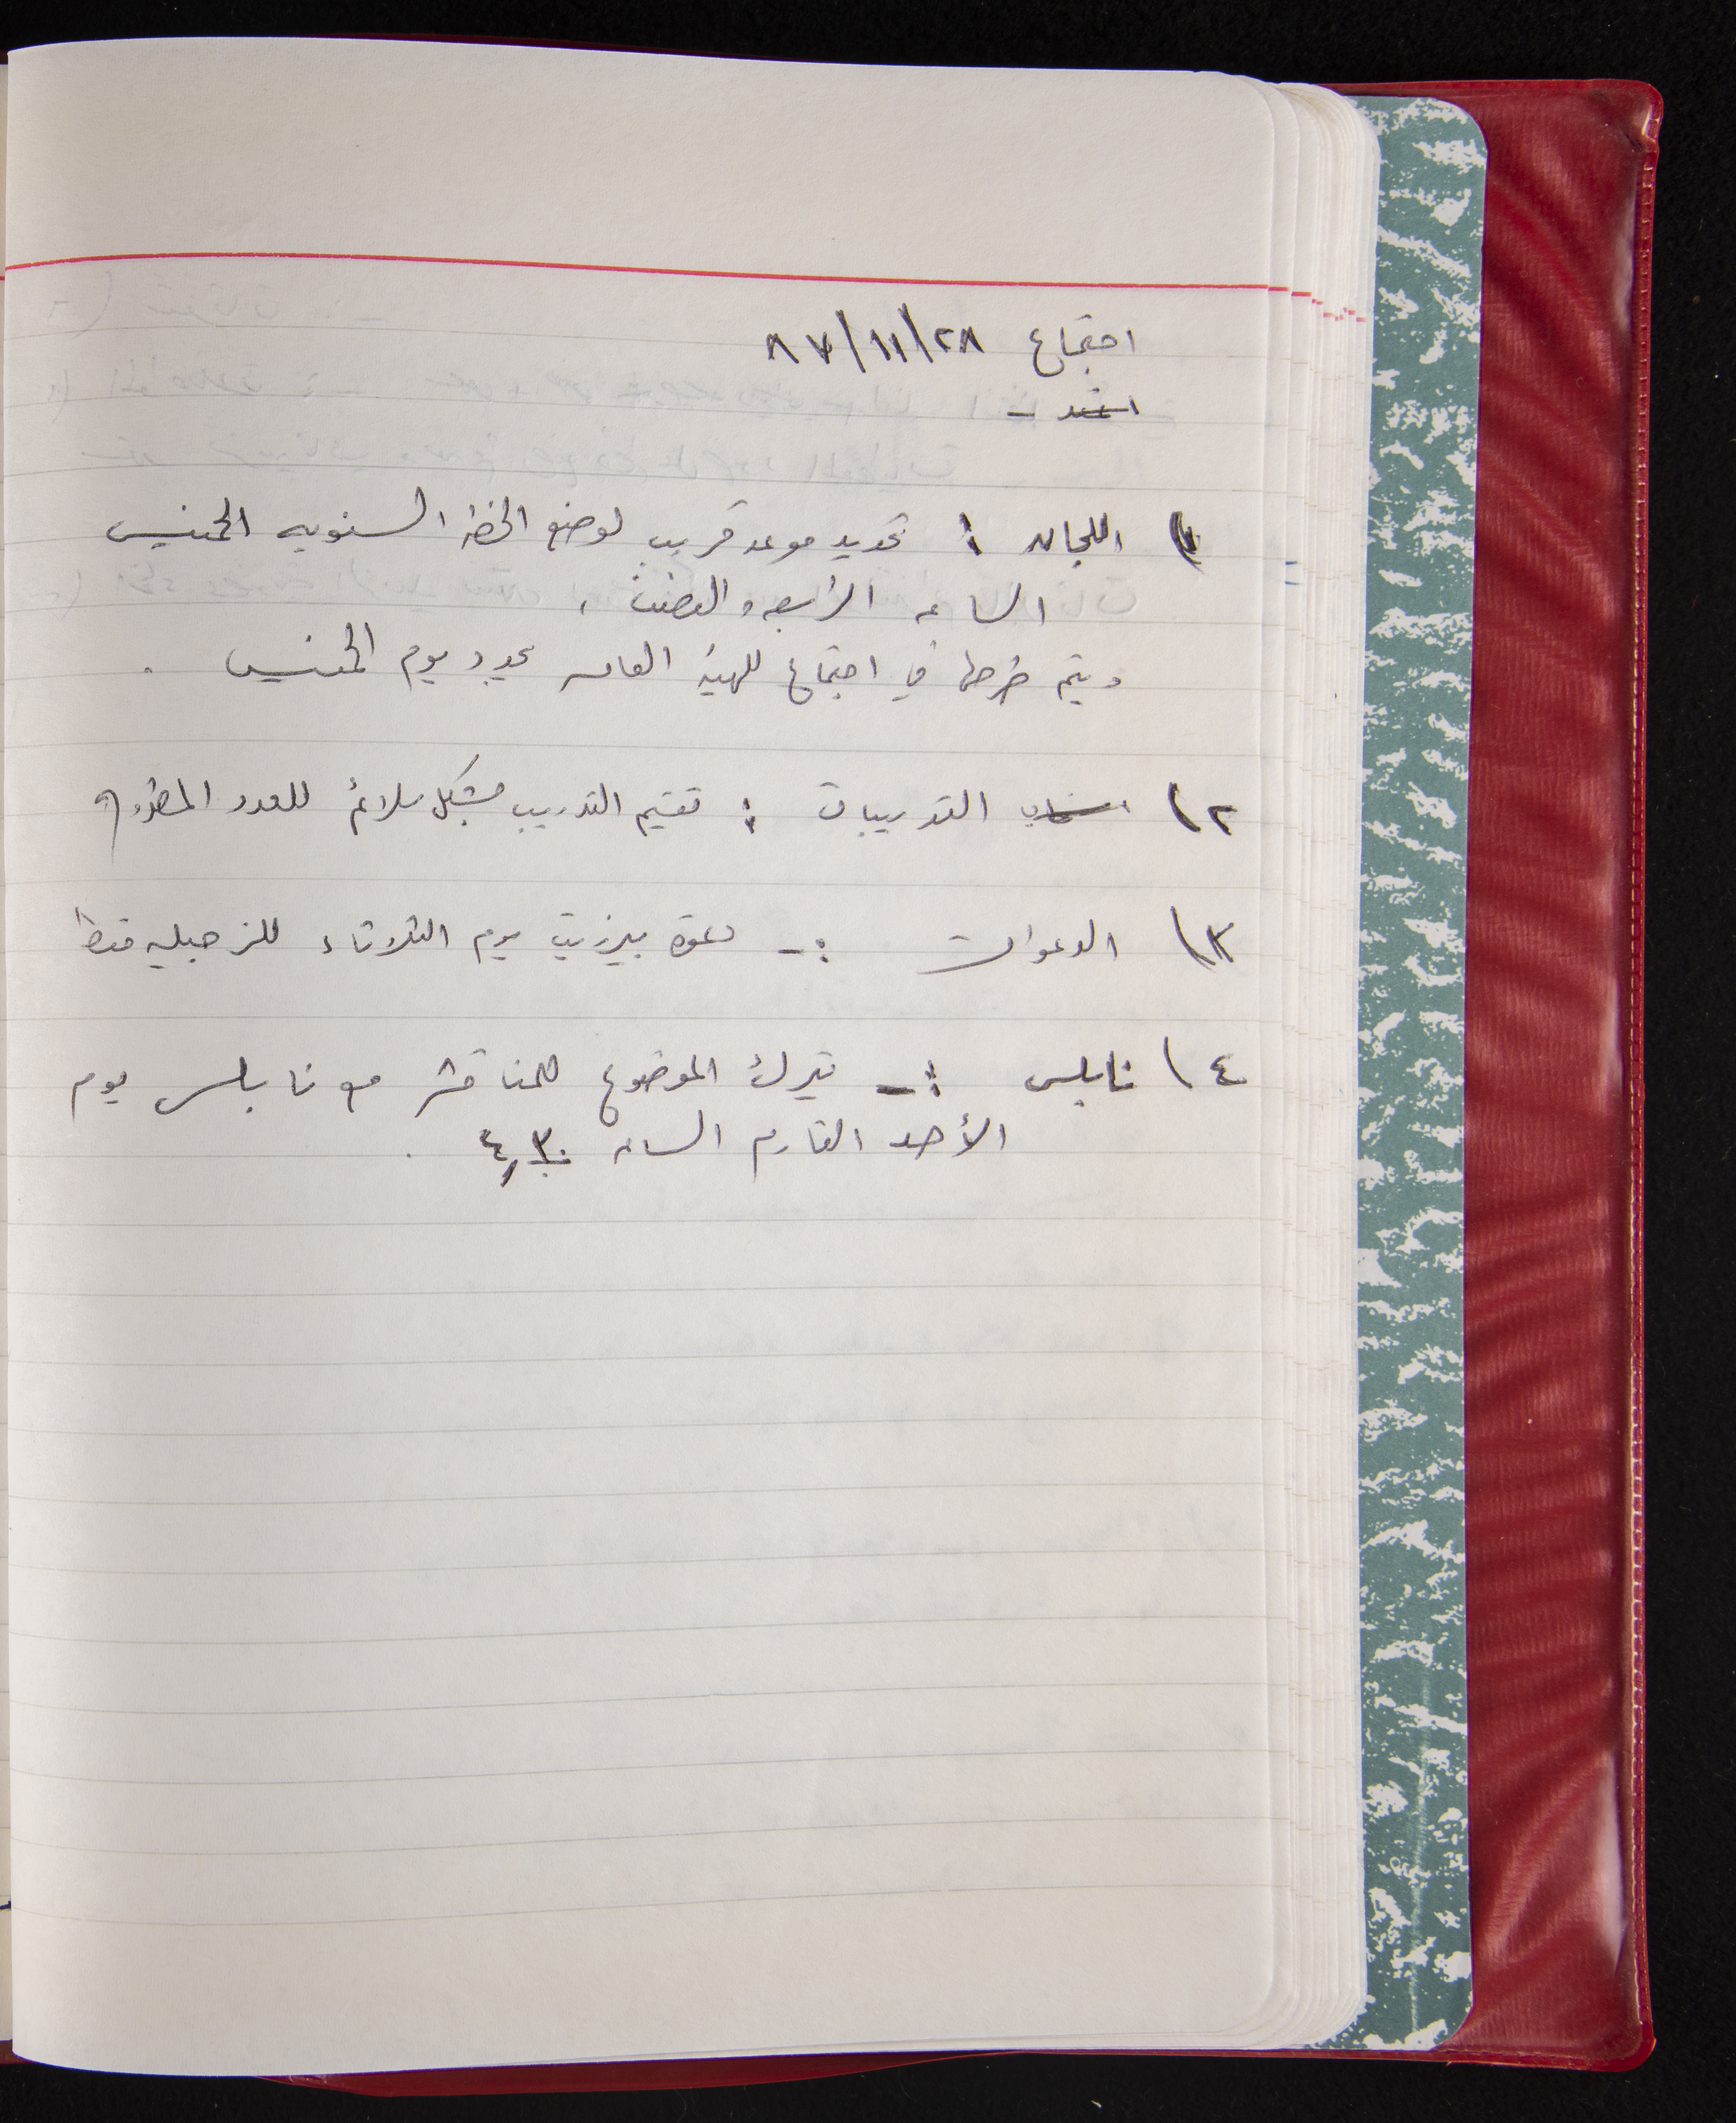 اجتماع ٨٧/١١/٢٨
١) اللجان : تحديد موعد قريب لوضع الخطة السنوية الخميس
الساعه الرابعه والنصف ،
ويتم طرحها في اجتماع للهيئة العامه يحدد يوم الخميس .
٢) التدريبات : تقييم التدريب بشكل ملائم للعدد المطروح
٣) الدعوات :- دعوة بيرزيت يوم الثلاثاء للزجليه فقط
٤) نابلس :- تترك الموضوع للمناقشة مع نابلس يوم
الأحد القادم الساعه ٤,٣٠ .